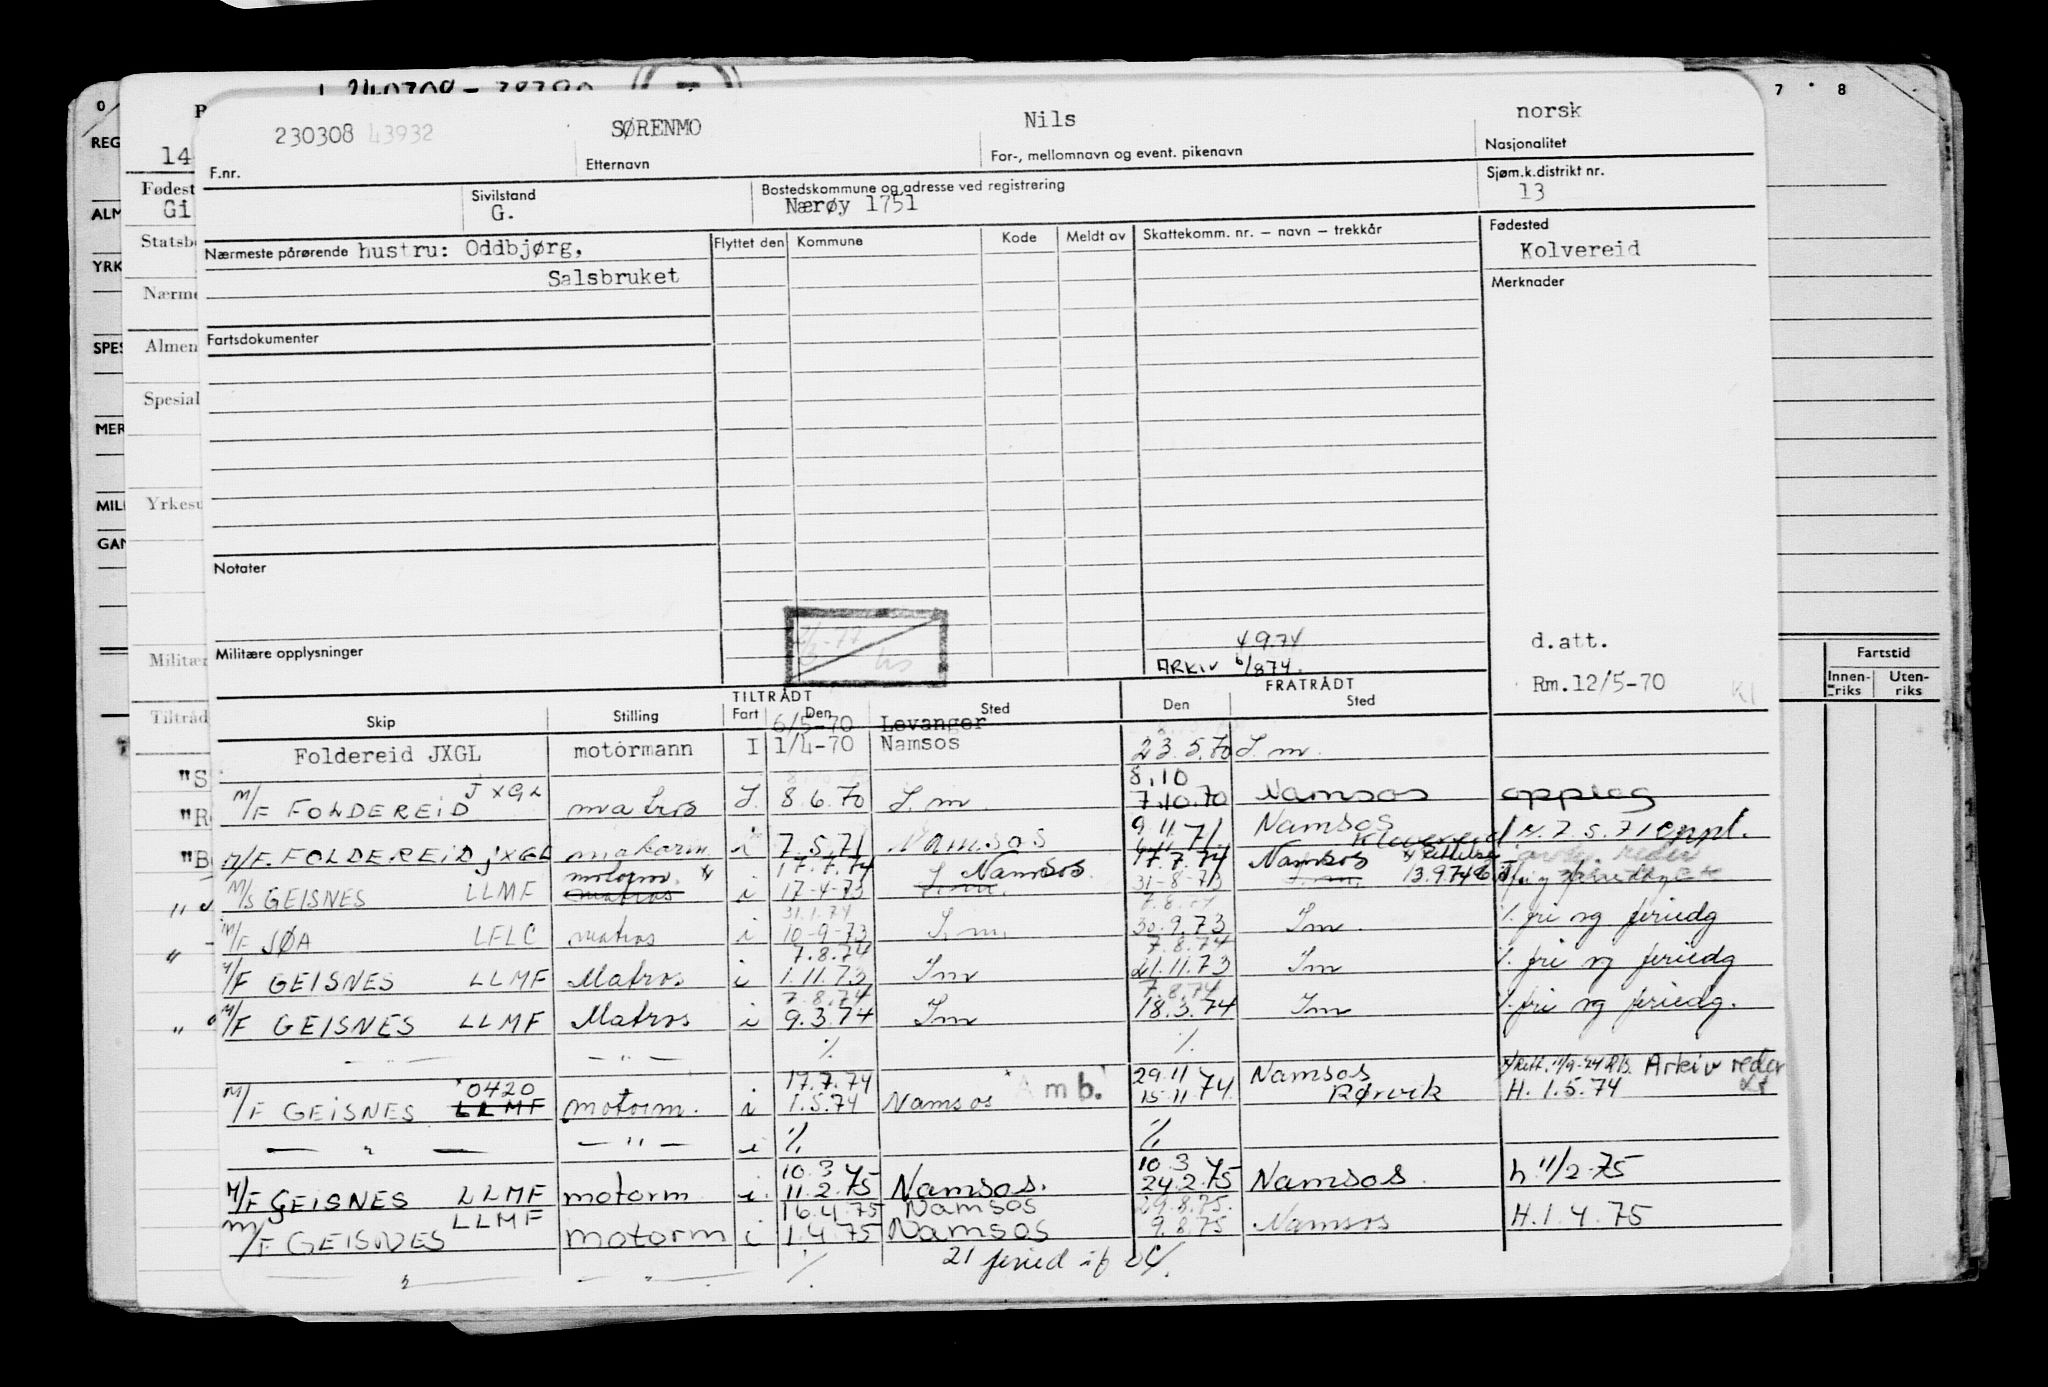 230308 43932 SØRENMO Nils norsk
F.nr. Etternavn For-, mellomnavn og event. pikenavn Nasjonalitet
Sivilstand Bostedskommune og adresse ved registrering Sjøm.k.distrikt nr.
G. Nærøy 1751 13
Nærmeste pårørende hustru: Oddbjørg, Flyttet den Kommune Kode Meldt av Skattekomm. nr. – navn – trekkår Fødested
Salsbruket Kolvereid
Merknader
Fartsdokumenter
Notater
4 9.74 d.att.
Militære opplysninger ARKIV 6/8 74. Rm. 12/5-70 Kl
TILTRÅDT FRATRÅDT
Skip Stilling Fart Den Sted Den Sted
6/5-70 Levanger
Foldereid JXGL motormann I 1/4-70 Namsos 23.5.70 S.m.
8.10
M/F FOLDEREID JXGL matros I. 8.6.70 S.m. 7.10.70 Namsos opplag
9.11 71 Namsos
M/F. FOLDEREID JXGL i 7.5.71 Namsos 7.5.71 oppl.
motorm. 17.7.74 Namsos 17.7.74 Namsos
M/S GEISNES LLMF matros i 17-4-73 S.m. 31-8-73 S.m. 13.9.74
31.1.74 7.8.74
M/F JØA LFLC matros i 10-9-73 S.m. 30.9.73 Sm. %. fri og feriedg
7.8.74 7.8.74
M/F GEISNES LLMF Matros i 1.11.73 Sm 21.11.73 Sm %. fri og feriedg
7.8.74 7.8.74
M/F GEISNES LLMF Matros i 9.3.74 Sm 18.3.74 Sm %. fri og feriedg.
— " — — " — % %
0420 17.7.74 Amb. 29.11 74 Namsos Arkiv reder
M/F GEISNES LLMF motorm. i 1.5.74 Namsos 15.11 Rørvik H. 1.5.74
— " — — " — i % %
10.3 75 10.3 75
M/F GEISNES LLMF motorm i. 11.2.75 Namsos. 24.2.75 Namsos. h 11/2-75
16.4.75 Namsos 29.8.75.
M/F GEISNES LLMF motorm i 1.4.75 Namsos 9.8.75 Namsos H. 1.4.75
— " — — " — % 21 feried
REG
14
Fødest
Gi
ALM
Statsb
YRK
Nærme
SPES
Almen
Spesial
MER
MILI
Yrkesu
GAN
Militær
Tiltråd
"S
"R
"B
7 8
Fartstid
Innen- Uten-
riks riks